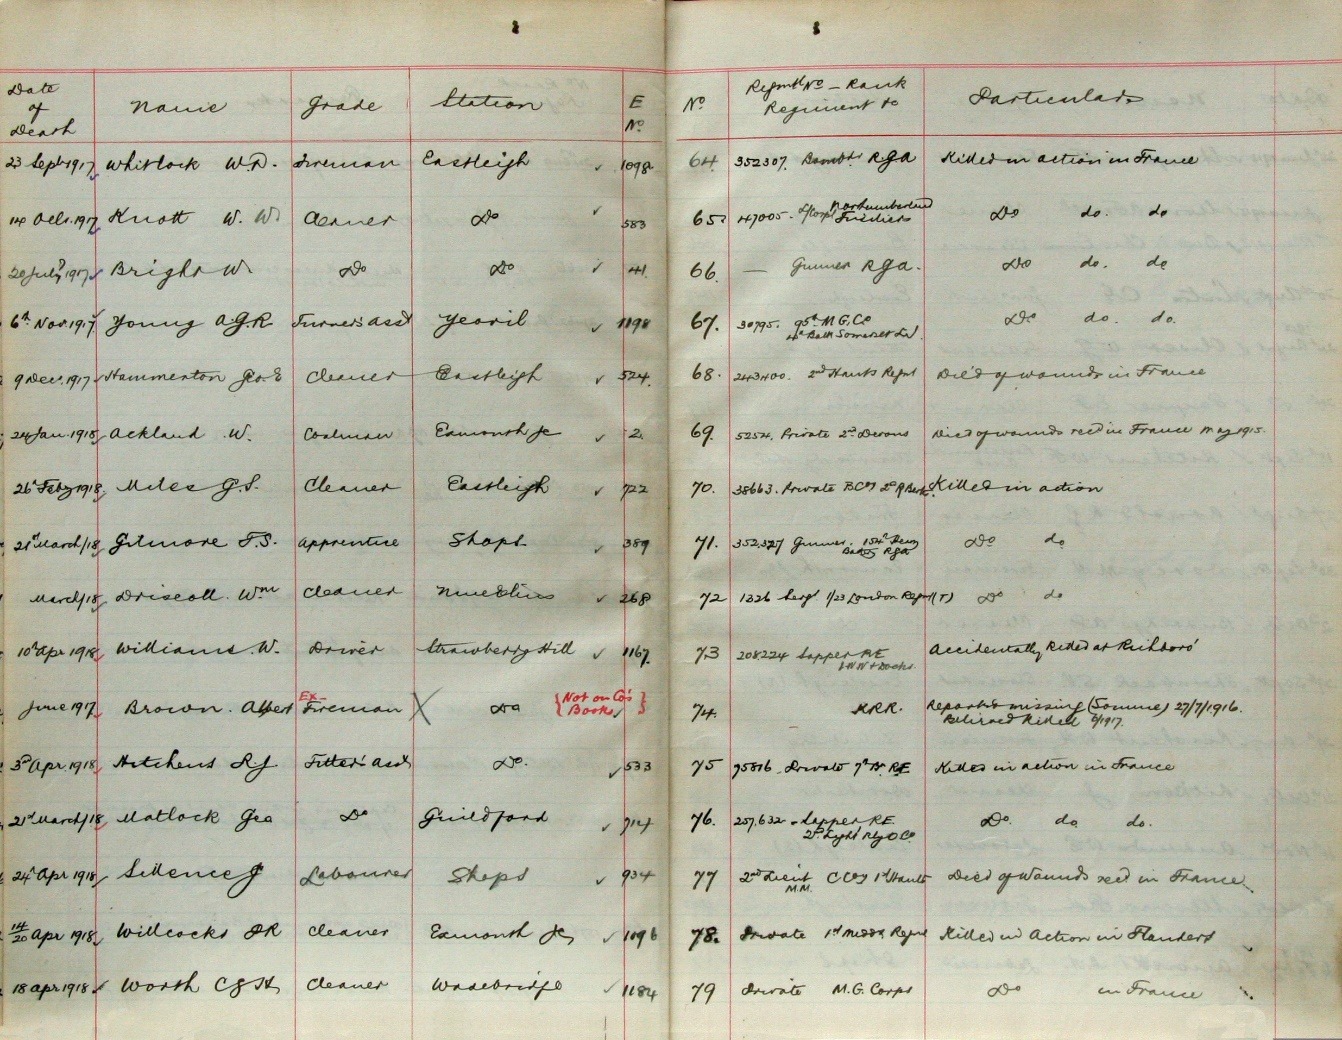 Date of Death Name Grade Station E No. No. Regmtl No. - Rank Regiment &c Particulars
23 Sept 1917 Whitlock W.D. Fireman Eastleigh 1098 64. 352307. Bombdr RGA Killed in action in France
14 Octr. 1917 Knott W. W. Cleaner Do 583 65 47005. L/Corpl Northumberland Fusiliers Do do. do
20 July 1917 Bright W. Do Do 41. 66. — Gunner RGA. Do do. do
6th Nov. 1917 Young A.G.R. Turner's Asst Yeovil 1198 67. 30795. 95th M.G. Co 4th Batt Somerset L.I. Do do. do.
9 Decr. 1917 Hammerton Geo. E Cleaner Eastleigh 524. 68. 243400. 2nd Hants Regmt Died of wounds in France
24 Jan. 1918 Ackland W. Coalman Exmouth Jc 2. 69. 5254. Private 2nd Devons Died of wounds recd in France May 1915.
26 Feby 1918. Miles G.S. Cleaner Eastleigh 722 70. 38663. Private B Coy 2nd R Berks. Killed in action
21st March/18 Gilmore F.S. Apprentice Shops 389 71. 352327 Gunner. 154th Heavy Batty RGA Do do
March/18 Driscoll Wm Cleaner Nine Elms 268 72 1326 Sergt 1/23 London Regmt (T) Do do
10th Apr 1918 Williams. W. Driver Strawberry Hill 1167. 73 208224 Sapper RE I.W.W & Docks. Accidentally Killed at Richboro'
June 1917. Brown. Albert Ex- Fireman X Do {Not on Co's Books} 74. KRR. Reported missing (Somme) 27/7/1916. Believed Killed 6/1917.
3rd Apr. 1918 Hutchens R J Fitter's Asst Do. 533 75 95816. Private 7th Bn RE Killed in action in France
21st March/18 Matlock Geo Do Guildford 714 76. 257.632 - Sapper RE 2nd Light Rly O Co Do. do. do.
24th Apr 1918 Sillence J Labourer Shops 934 77 2nd Lieut M.M. C Coy 1st Hants Died of Wounds recd in France
14/20 Apr 1918 Willcocks J R Cleaner Exmouth Jc 1096 78. Private 1st Middx Regmt Killed in Action in Flanders
18 Apr 1918 Worth C J H Cleaner Wadebridge 1184 79 Private M.G. Corps Do in France